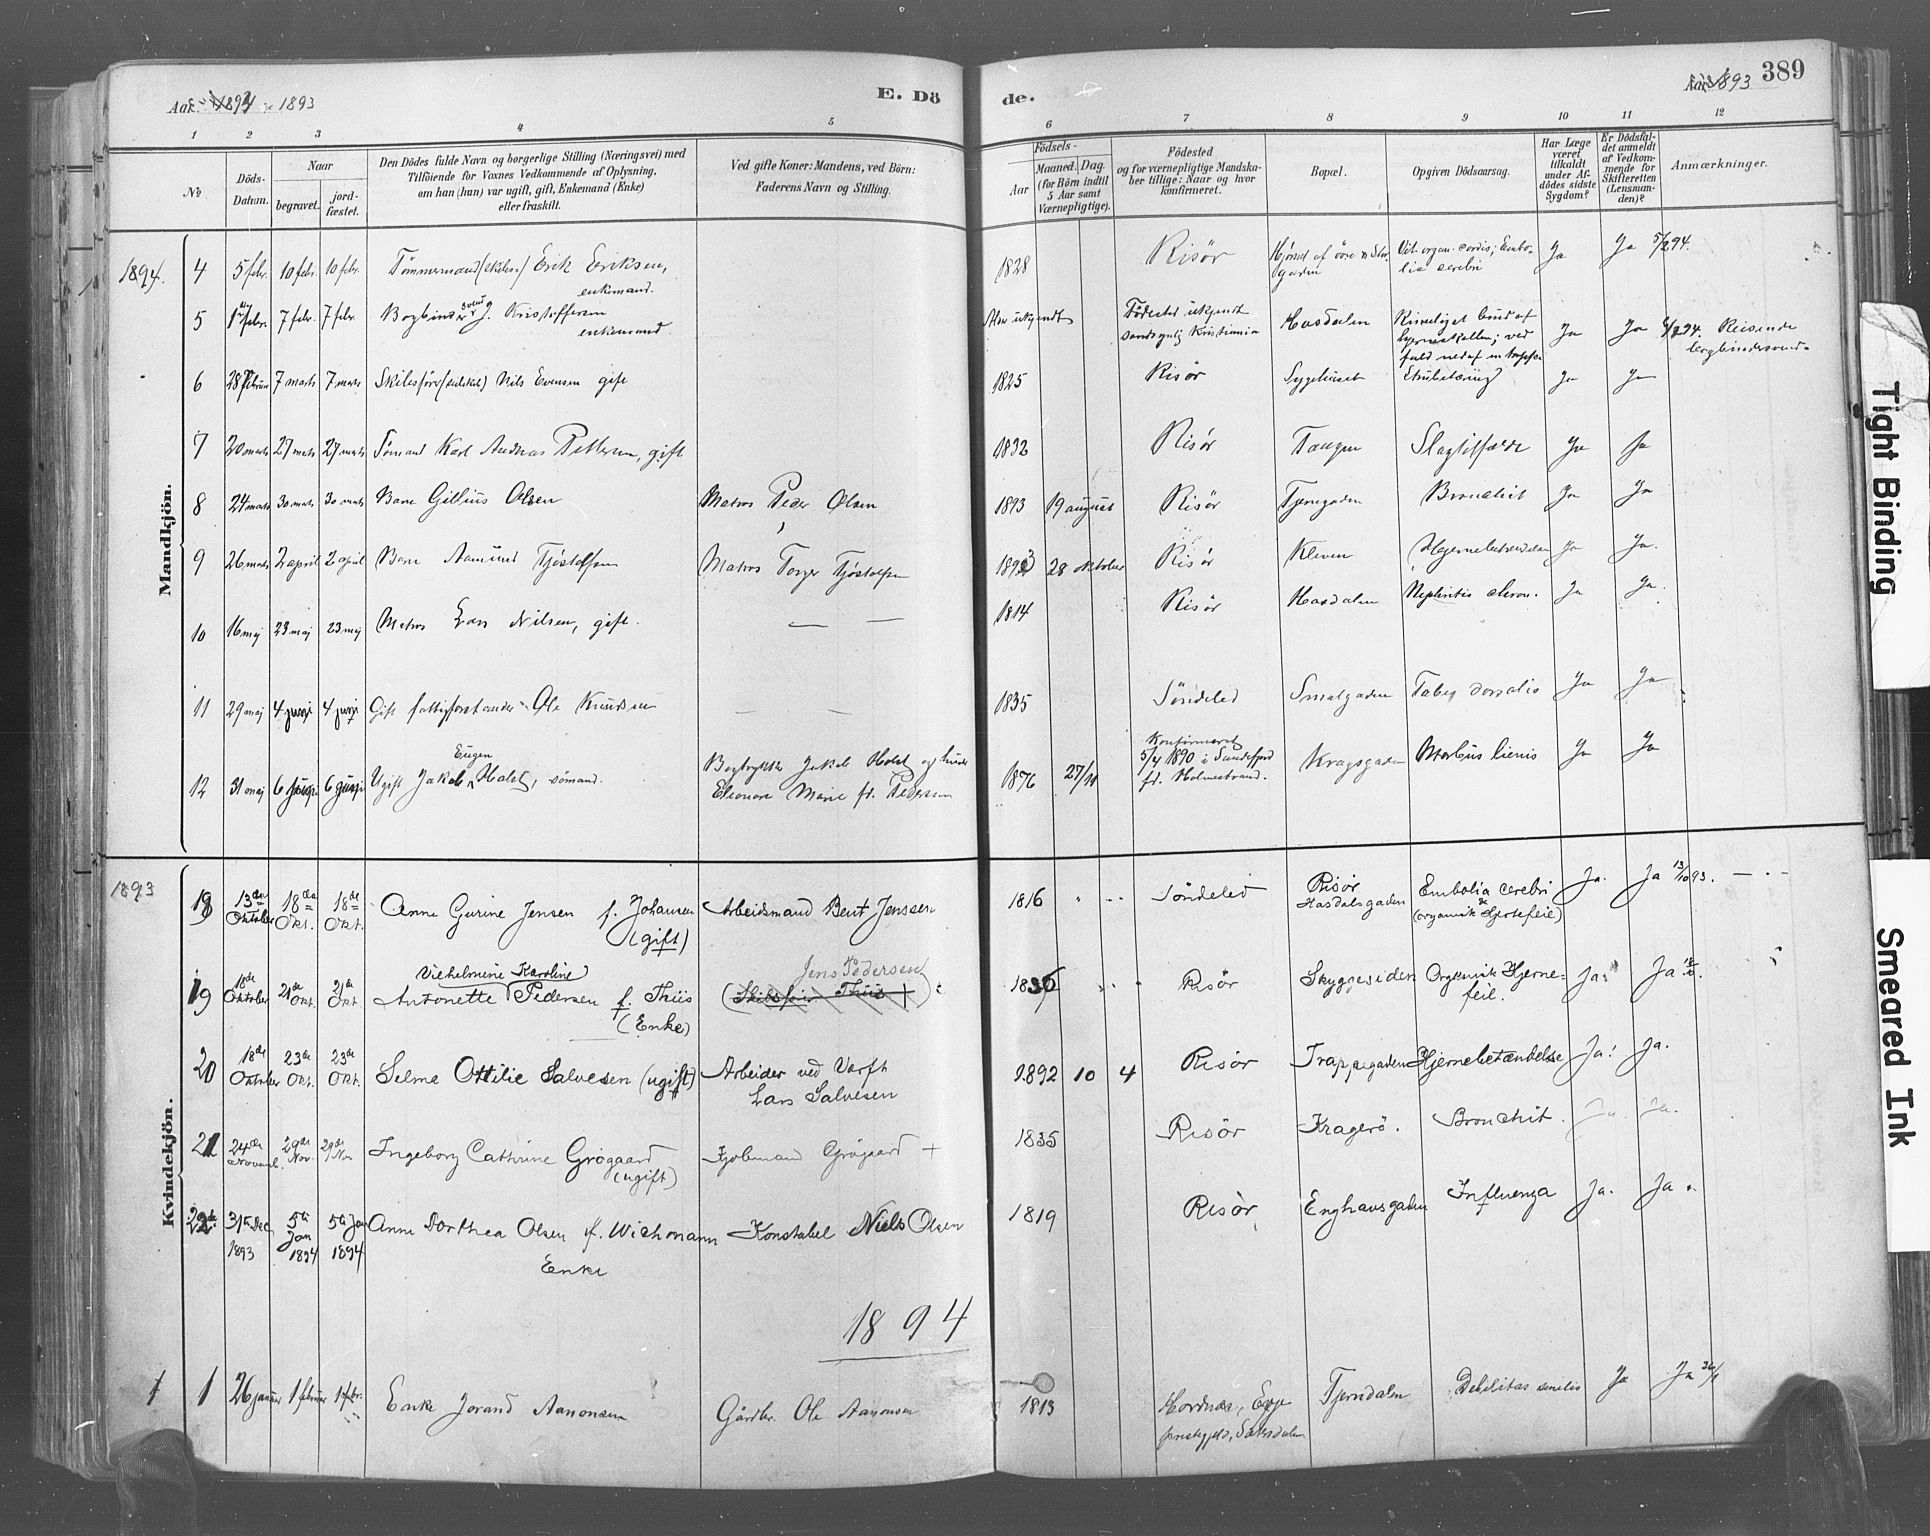 Aar 1894 1893
E. Dö
de.
Aar 1893 389
1 2 3 4 5 6 7 8 9 10 11 12
No
Döds-
Datum.
Naar
begravet.
jord-
fæstet.
Den Dödes fulde Navn og borgerlige Stilling (Næringsvei) med
Tilföiende for Voxnes Vedkommende af Oplysning,
om han (hun) var ugift, gift, Enkemand (Enke)
eller fraskilt.
Ved gifte Koner: Mandens, ved Börn:
Faderens Navn og Stilling.
Födsels-
Aar
Maaned. Dag.
(for Börn indtil
5 Aar samt
Værnepligtige).
Födested
og for værnepligtige Mandska-
ber tillige: Naar og hvor
konfirmeret.
Bopæl.
Opgiven Dödsaarsag.
Har Læge
været
tilkaldt
under Af-
dödes sidste
Sygdom?
Er Dödsfal-
det anmeldt
af Vedkom-
mende for
Skifteretten
(Lensman-
den)?
Anmærkninger.
Mandkjön.
1894. 4 5 febr. 10 febr. 10 febr. Tömmermand Erik Eriksen,
enkemand.
1828 Risör Hjörnet af övre Stor-
gaden Vit. organ. cordis; Embo-
lia cerebri Ja Ja 5/2 94.
5 1ste febr. 7 febr. 7 febr. Bogbinder svend J. Kristoffersen
enkemand
Aar ukjendt Födested ukjendt
sandsynlig Kristiania Hasdalen Rimeligst brud af
hjerneskallen; ved
fald ned af en trappe Ja Ja 6/2 94. Reisende
bogbindersvend.
6 28 februar 7 marts 7 marts Skibsförer Nils Evensen gift
1825 Risör Sygehuset Strubetæring Ja Ja
7 20 marts 27 marts 27 marts Sömand Karl Andreas Pettersen, gift
1832 Risör Tangen Slagtilfælde Ja Ja
8 24 marts 30 marts 30 marts Barn Gillius Olsen Matros Peder Olsen
1893 19 august Risör Tjenngaden Bronchit Ja Ja
9 26 marts 2 april 2 april Barn Aamund Tjöstolfsen Matros Torger Tjöstolfsen
1893 28 oktober Risör Kleven Hjernebetændelse Ja Ja.
10 16 maj 23 maj 23 maj Matros Lars Nilsen, gift. — —
1814 Risör Hasdalen Nephritis chron. Ja Ja.
11 29 maj 4 juni 4 juni Gift fattigforstander Ole Knudsen — —
1835 Söndeled Smalgaden Tabes dorsalis Ja Ja
12 31 maj 6 juni 6 juni Ugift Jakob Eugen Holst, sömand. Bogtrykker Jakob Holst og hustru
Eleonore Marie fd. Pedersen
1876 27/11 Konfirmeret
5/4 1890 i Sandefjord
fd. Holmestrand. Kragsgaden Morbus lienis Ja Ja
Kvindekjön.
1893 18 13de Oktober 18de Okt. 18de Okt. Anne Gurine Jensen f. Johansen
(gift) Arbeidsmand Bent Jenssen
1816 Söndeled Risör
Hasdalsgaden Embolia cerebri
(organisk Hjertefeil) Ja. Ja 13/10 93. — . —
19 18de Oktober 21de Okt. 21de Okt Vilhelmine Karoline
Antonette Pedersen f. Thiis
(Enke) Jens Pedersen
(Skibsförer Thiis †)
1836 Risör Skyggesiden Organisk Hjerne-
feil. Ja. Ja
20 18de Oktober 23de Okt. 23de Okt. Selma Ottilie Salvesen (ugift) Arbeider ved Værft
Lars Salvesen
1892 10 4 Risör Trappegaden Hjernebetændelse Ja. Ja.
21 24de Novemb. 29de Nov. 29de Nov Ingeborg Cathrine Grögaard
(ugift) Kjöbmand Grögaard +
1835 Risör Kragerö. Bronchit. Ja. Ja.
22 31te Dec 1893 5te Jan 1894 5te Jan 1894 Anne Dorthea Olsen f. Wichmann
Enke Konstabel Niels Olsen
1819 Risör Enghavsgaden Influenza Ja. Ja
1894
1 1 26 januar 1 februar 1 febr. Enke Jorand Aanonsen Gårdbr. Ole Aanonsen
1813 Hordnæs, Evje
prestegjeld, Sætersdalen Tjenndalen Debilitas senilis Ja Ja 26/1
Tight Binding
Smeared Ink